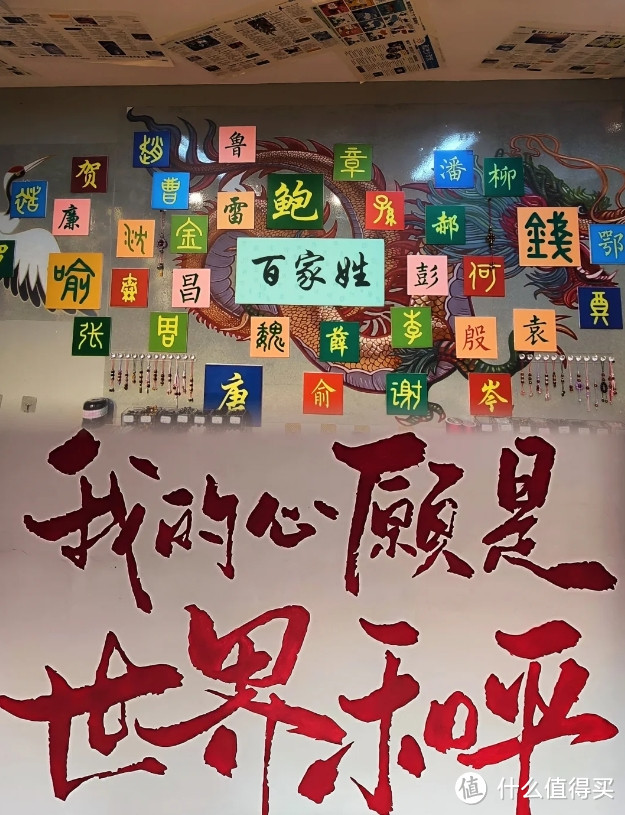 趙 魯 章 潘 柳
贺 曹
廉 雷 鲍 孫 郝 錢 鄂
沈 金
喻 昌 百家姓 彭 何
张 周 魏 薛 李 殷 袁
唐 俞 谢 岑
我的心愿是
世界和平
值 什么值得买